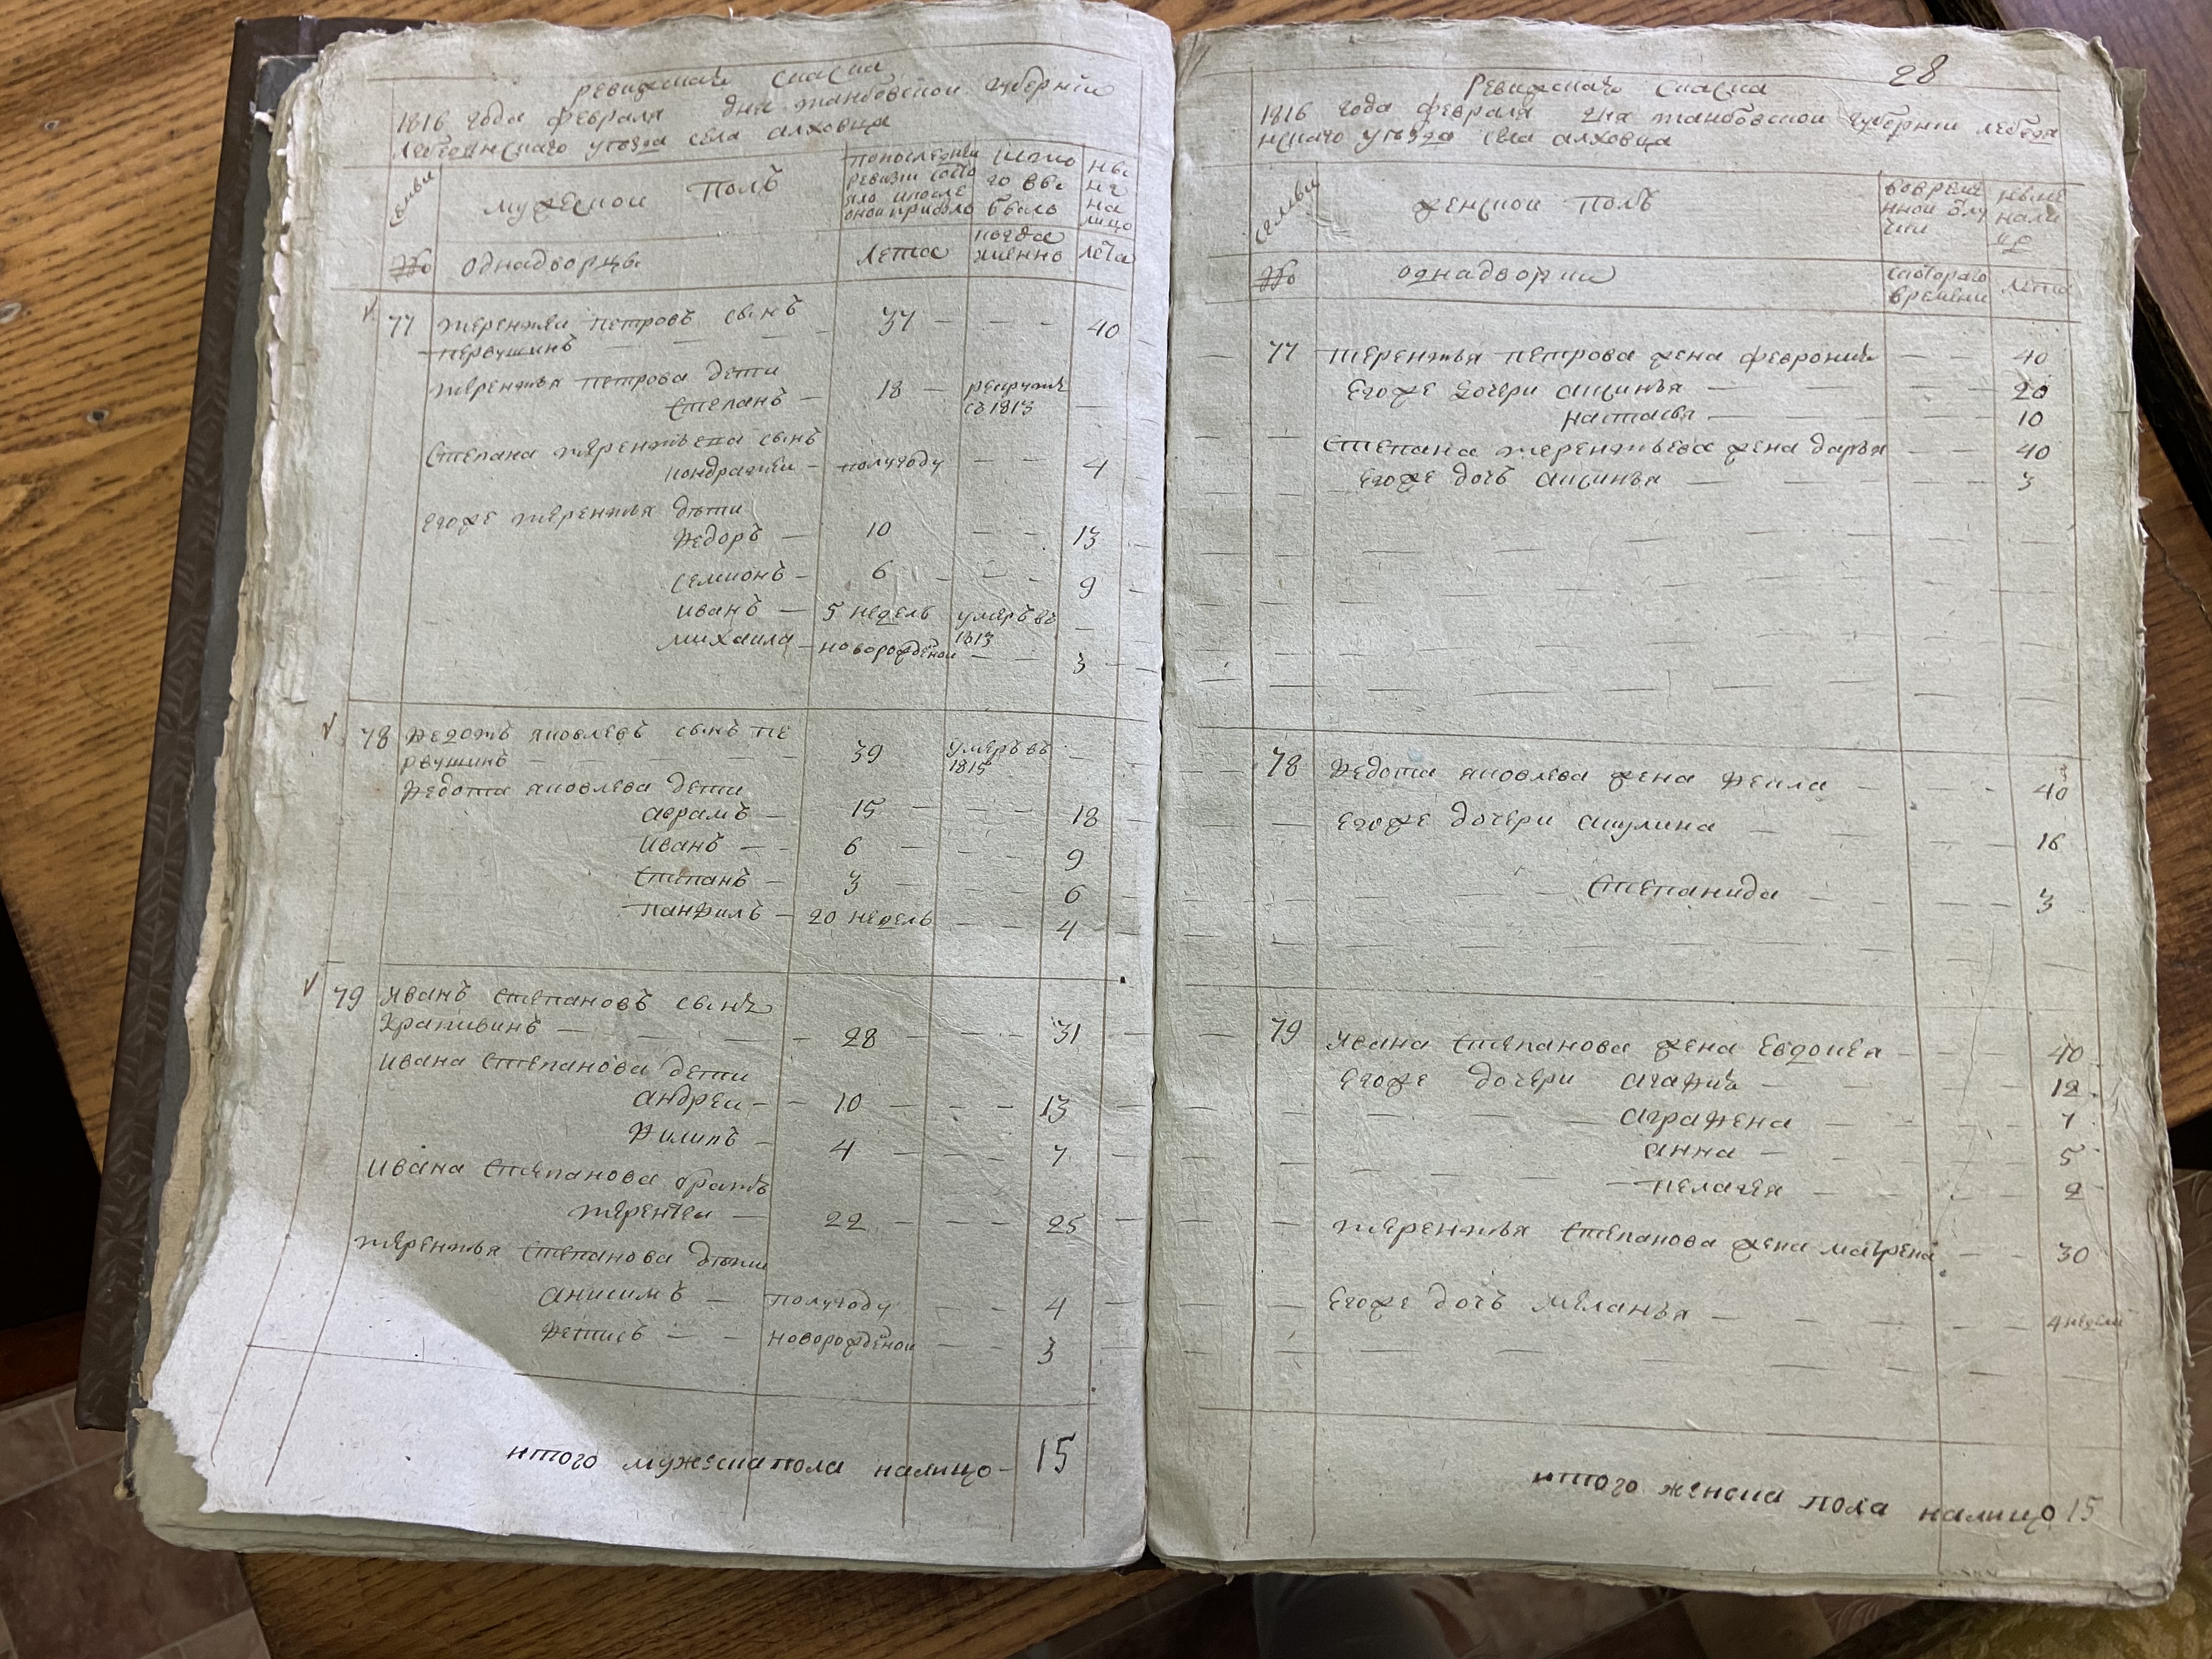 ревижская скаска
1816 года февраля дня танбовской губернии
лебедянскаго уѣзда села алховца
семьи
мужескои полъ
попоследнеи ревизи состояло ипосле онои прибыло
исто го выбыло
ныне на лицо
№ однадворцы
лета
когда имянно
лета
77 терентеи петровъ сынъ 37 40
первушинъ
терентья петрова дети
степанъ 18 рекрутъ съ 1813
степана терентьева сынъ
кондратеи полугоду 4
егоже терентья дѣти
Федоръ 10 13
семионъ 6 9
иванъ 5 недель умеръ въ 1813
михаила новорожденои 3
78 Федотъ яковлевъ сынъ пе 39 умеръ въ 1815
рвушинъ
Федота яковлева дети
аврамъ 15 18
иванъ 6 9
степанъ 3 6
панфилъ 20 недель 4
79 иванъ степановъ сынъ
крапивинъ 28 31
ивана степанова дети
андреи 10 13
Филипъ 4 7
ивана степанова братъ
терентеи 22 25
терентья степанова дѣти
анисимъ полугоду 4
Фетисъ новорожденои 3
итого мужеска пола налицо 15
28
ревижская скаска
1816 года февраля дня танбовской губернии лебедя
нскаго уѣзда села алховца
семьи
женскои полъ
вовременнои отлучки
ныне налицо
№ однадворки
скотораго времени
лета
77 терентья петрова жена феврония 40
егоже дочери аксинья 20
настасья 10
степана терентьева жена дарья 40
егоже дочь аксинья 3
78 Федота яковлева жена Фекла 40
егоже дочери акулина 16
степанида 3
79 ивана степанова жена евдокея 40
егоже дочери агафия 12
аграфена 7
анна 5
пелагея 2
терентья степанова жена матрена 30
егоже дочь меланья 4 недели
итого женска пола налицо 15